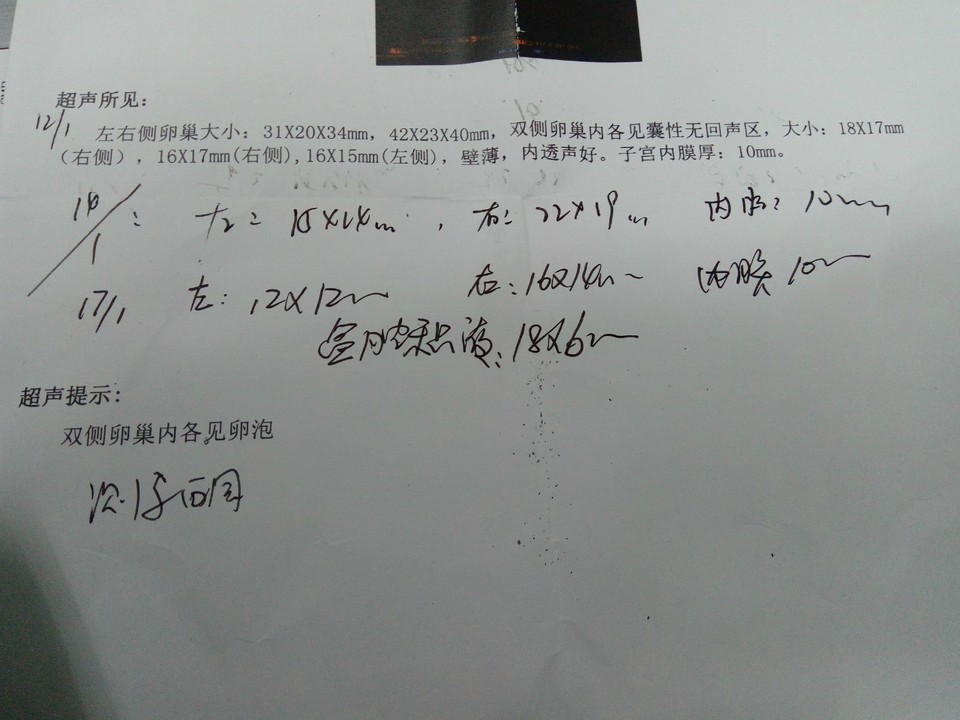 超声所见：
12/1
左右侧卵巢大小：31X20X34mm，42X23X40mm，双侧卵巢内各见囊性无回声区，大小：18X17mm
（右侧），16X17mm(右侧),16X15mm(左侧)，壁薄，内透声好。子宫内膜厚：10mm。
14/1： 左： 15X14mm， 右： 22X19mm 内膜： 10mm
17/1 左： 12X12mm 右：16X14mm 内膜 10mm
盆腔积液：18X6mm
超声提示：
双侧卵巢内各见卵泡